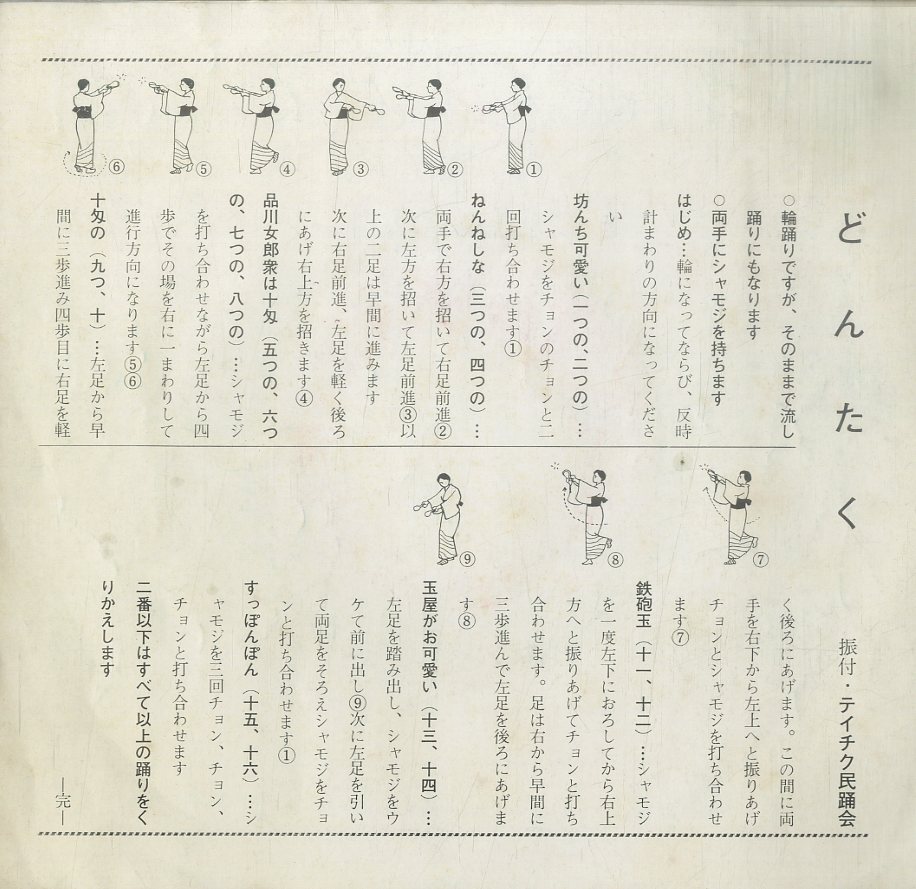 どんたく
振付・テイチク民踊会
○輪踊りですが、そのままで流し
踊りにもなります
○両手にシャモジを持ちます
はじめ…輪になってならび、反時
計まわりの方向になってくださ
い
坊んち可愛い(一つの、二つの)…
シャモジをチョンのチョンと二
回打ち合わせます①
ねんねしな(三つの、四つの)…
両手で右方を招いて右足前進②
次に左方を招いて左足前進③以
上の二足は早間に進みます
次に右足前進、左足を軽く後ろ
にあげ右上方を招きます④
品川女郎衆は十匁(五つの、六つ
の、七つの、八つの)…シャモジ
を打ち合わせながら左足から四
歩でその場を右に一まわりして
進行方向になります⑤⑥
十匁の(九つ、十)…左足から早
間に三歩進み四歩目に右足を軽
①
②
③
④
⑤
⑥
く後ろにあげます。この間に両
手を右下から左上へと振りあげ
チョンとシャモジを打ち合わせ
ます⑦
鉄砲玉(十一、十二)…シャモジ
を一度左下におろしてから右上
方へと振りあげてチョンと打ち
合わせます。足は右から早間に
三歩進んで左足を後ろにあげま
す⑧
玉屋がお可愛い(十三、十四)…
左足を踏み出し、シャモジをウ
ケて前に出し⑨次に左足を引い
て両足をそろえシャモジをチョ
ンと打ち合わせます①
すっぽんぽん(十五、十六)…シ
ャモジを三回チョン、チョン、
チョンと打ち合わせます
二番以下はすべて以上の踊りをく
りかえします
―完―
⑦
⑧
⑨